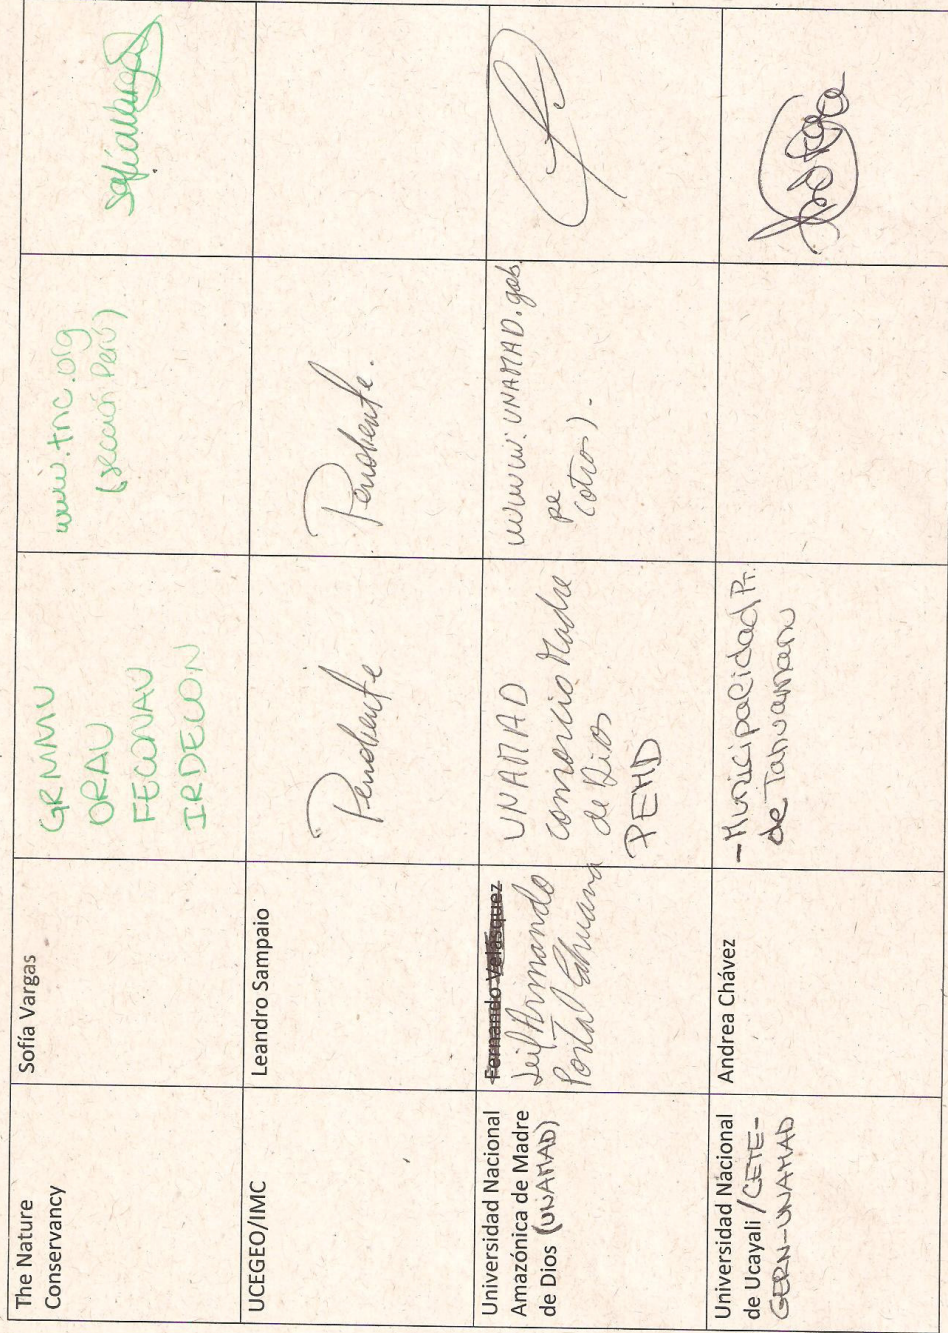 The Nature
Conservancy
Sofía Vargas
GRMMU
ORAU
FECONAU
IRDECON
www.tnc.org
(sección Perú)
UCEGEO/IMC
Leandro Sampaio
Pendiente
Pendiente.
Universidad Nacional
Amazónica de Madre
de Dios (UNAMAD)
Fernando Velásquez
Armando
Portal
UNAMAD
consorcio Madre
de Dios
PEMD
www.UNAMAD.gob.
pe
(otros).
Universidad Nacional
de Ucayali /CETE-
GERN-UNAMAD
Andrea Chávez
-Municipalidad Pr.
de Tahuamanu